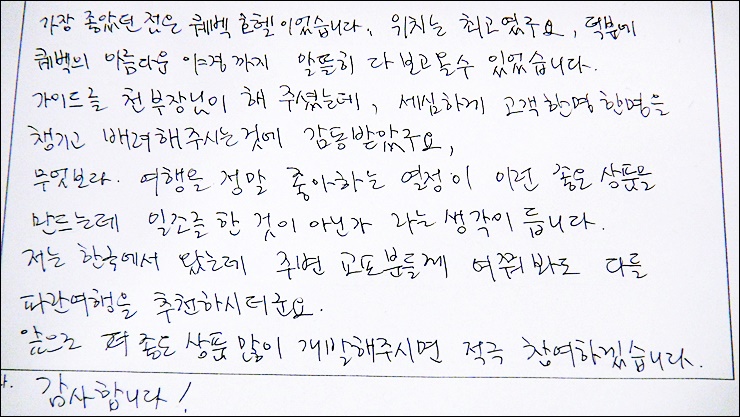 가장 좋았던 점은 퀘벡 호텔이었습니다. 위치는 최고였구요, 덕분에
퀘벡의 아름다운 야경까지 알뜰히 다 보고 올 수 있었습니다.
가이드를 천부장님이 해 주셨는데, 세심하게 고객 한명 한명을
챙기고 배려해주시는것에 감동받았구요,
무엇보다. 여행을 정말 좋아하는 열정이 이런 좋은 상품을
만드는데 일조를 한 것이 아닌가 라는 생각이 듭니다.
저는 한국에서 왔는데 주변 교포분들께 여쭤봐도 다들
파란여행을 추천하시더군요.
앞으로 더 좋은 상품 많이 개발해주시면 적극 참여하겠습니다.
감사합니다!